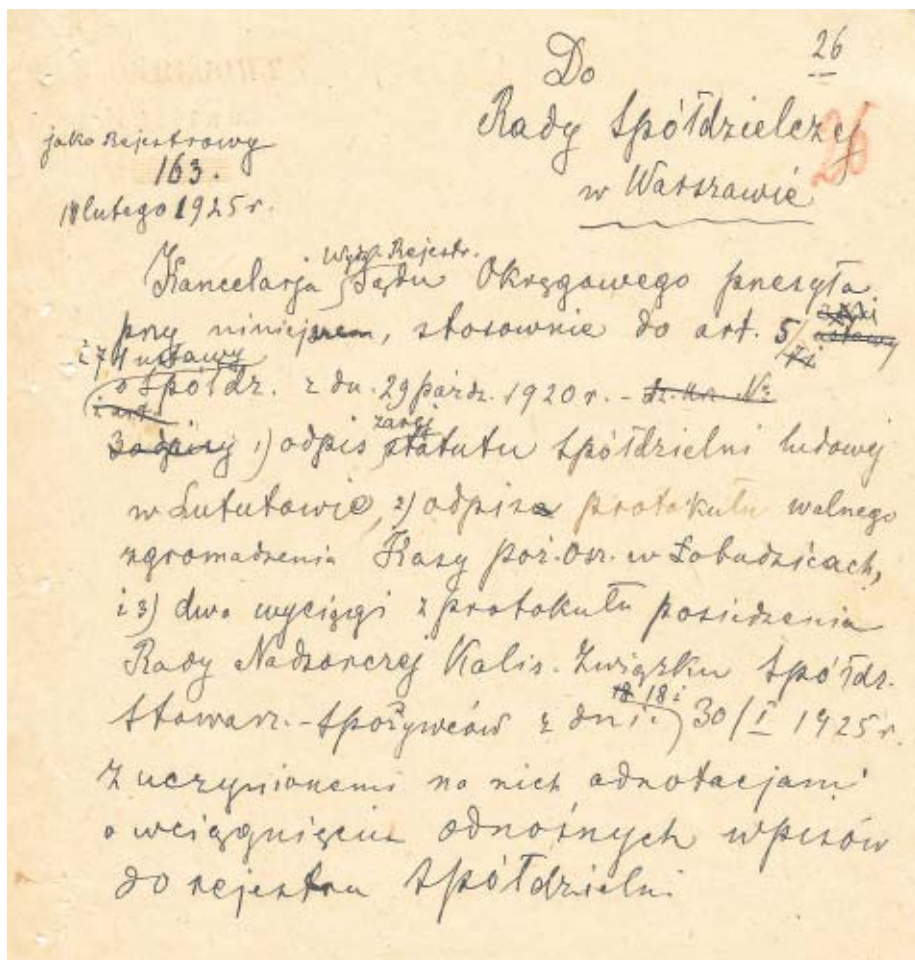 26
Do
Rady Spółdzielczej
26
w Warszawie
jako Rejestrowy
163.
18 lutego 1925 r.
Wydz. Rejestr.
Kancelarja Sądu Okręgowego przesyła
przy niniejszem, stosownie do art. 5/
i 74 ustawy
o Spółdz. z dn. 29 paźdz. 1920 r. - Dz. U. Nr
i art.
3 odpisy 1) odpis statutu Spółdzielni ludowej
w Lututowie, 2) odpis protokułu walnego
zgromadzenia Kasy Poż. Osz. w Łobudzicach,
i 3) dwa wyciągi z protokułu posiedzenia
Rady Nadzorczej Kalis. Związku Spółdz.
18 18 i
Stowarz. - Spożywców z dni. 30/I 1925 r.
z uczynionemi na nich adnotacjami
o wciągnięciu odnośnych wpisów
do rejestru Spółdzielni